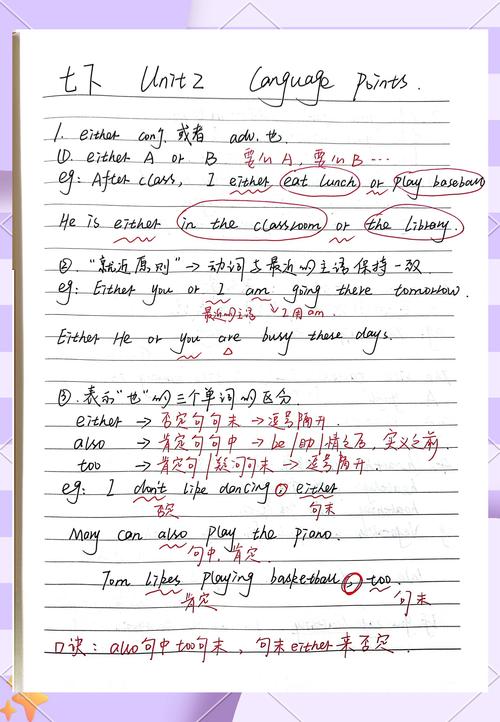 七下 Unit 2 Language Points.
1. either conj. 或者 adv. 也
①. either A or B 要么A, 要么B ...
eg: After class, I either eat lunch or play baseball
He is either in the classroom or the library.
②. "就近原则" → 动词与最近的主语保持一致
eg: Either you or I am going there tomorrow.
最近的主语 ↘ I用am.
Either He or you are busy these days.
③. 表示"也"的三个单词的区分.
either → 否定句句末 → 逗号隔开
also → 肯定句句中 → be/助/情之后, 实义之前
too → 肯定句/疑问句句末 → 逗号隔开.
eg: I don't like dancing, either
否定 句末
Mary can also play the piano.
句中, 肯定.
Tom likes playing basketball, too.
肯定 句末
口诀: also句中too句末, 句末either来否定.